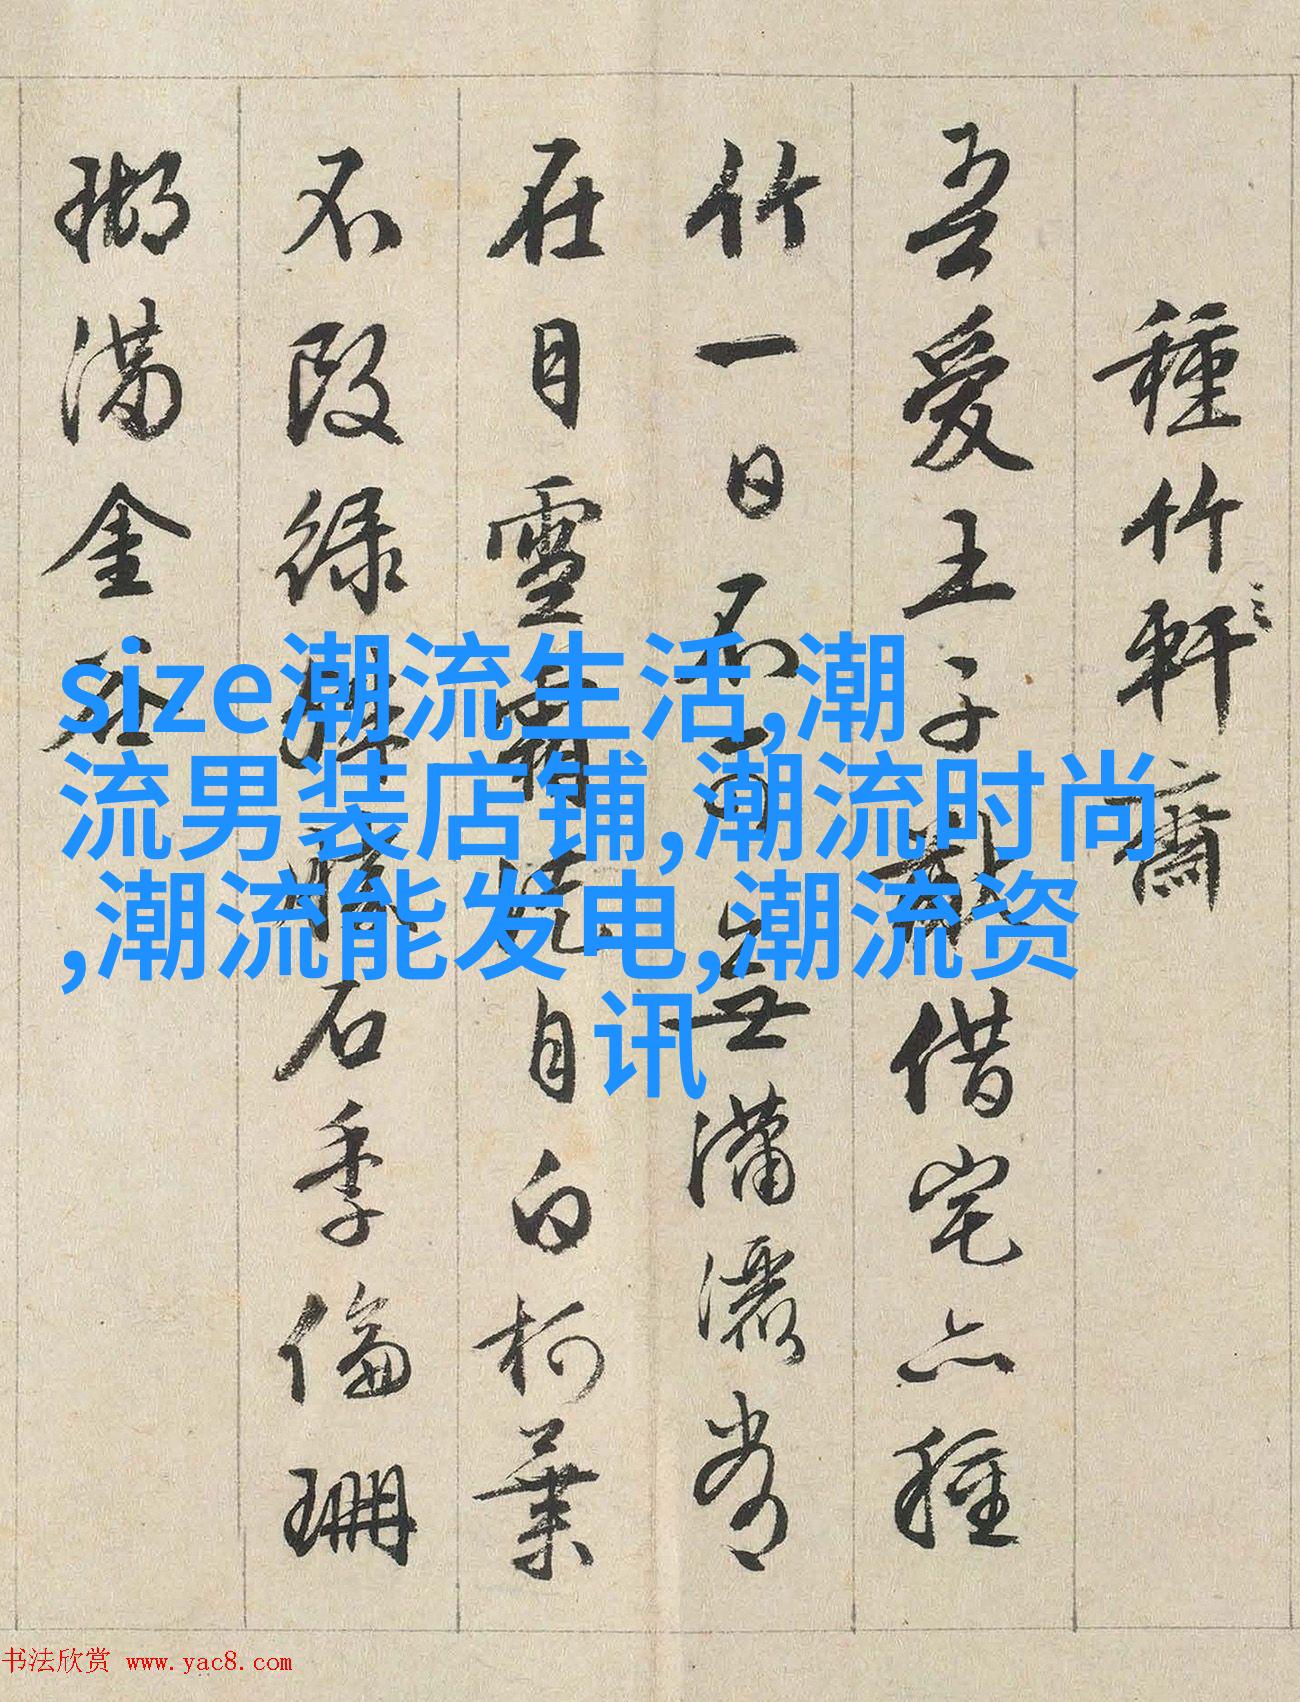 種竹軒齋
吾愛王子猷借宅亦種
竹一日不可無瀟灑常
在目雪霜徒自白柯葉
不改綠殊勝石季倫珊
瑚滿金谷
size潮流生活,潮
流男装店铺,潮流时尚
,潮流能发电,潮流资
讯
书法欣赏 www.yac8.com